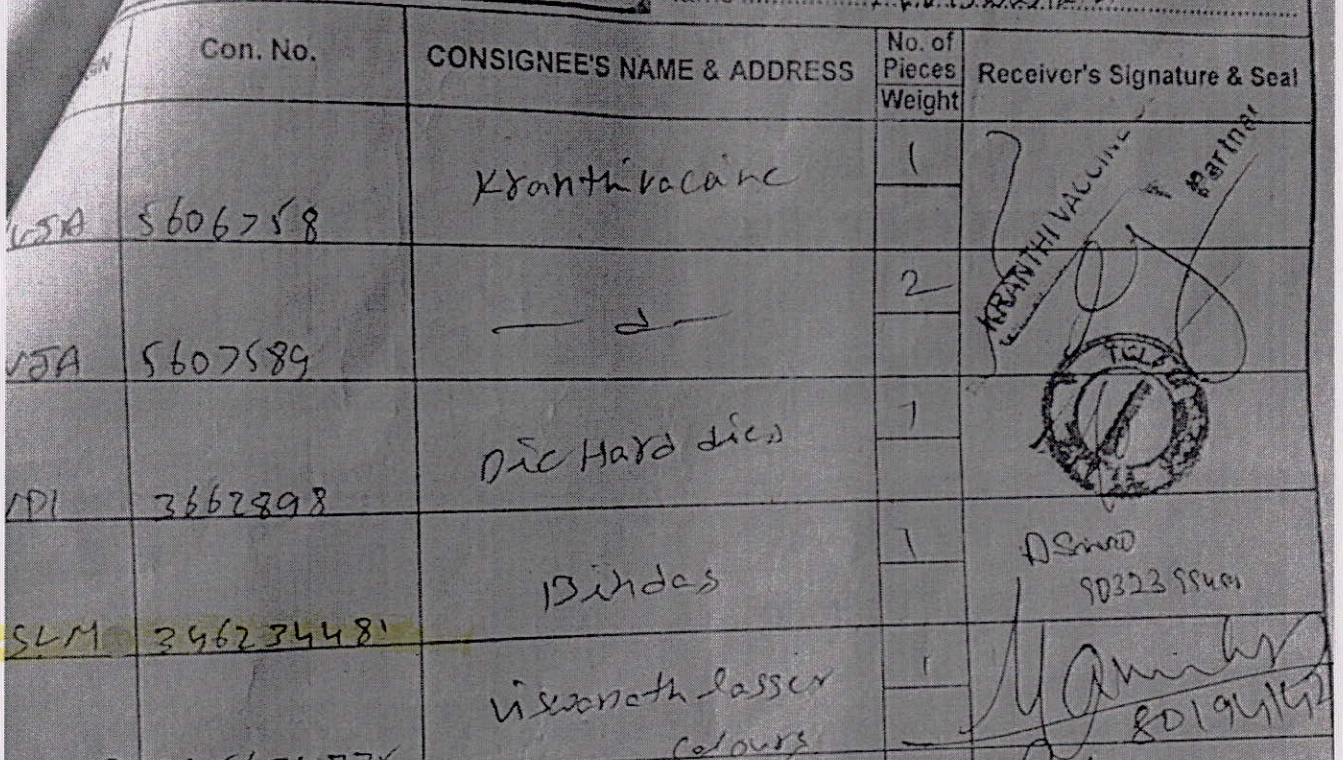 Con. No. CONSIGNEE'S NAME & ADDRESS No. of Pieces Weight Receiver's Signature & Seal
VJA 5606758 Kranthivacaine 1 KRANTHI VACCINE Partner
VJA 5607589 — d — 2
3662898 Die Hard dies 1
SLM 346234481 Bindas 1
Viswanath lasser 1
Colours